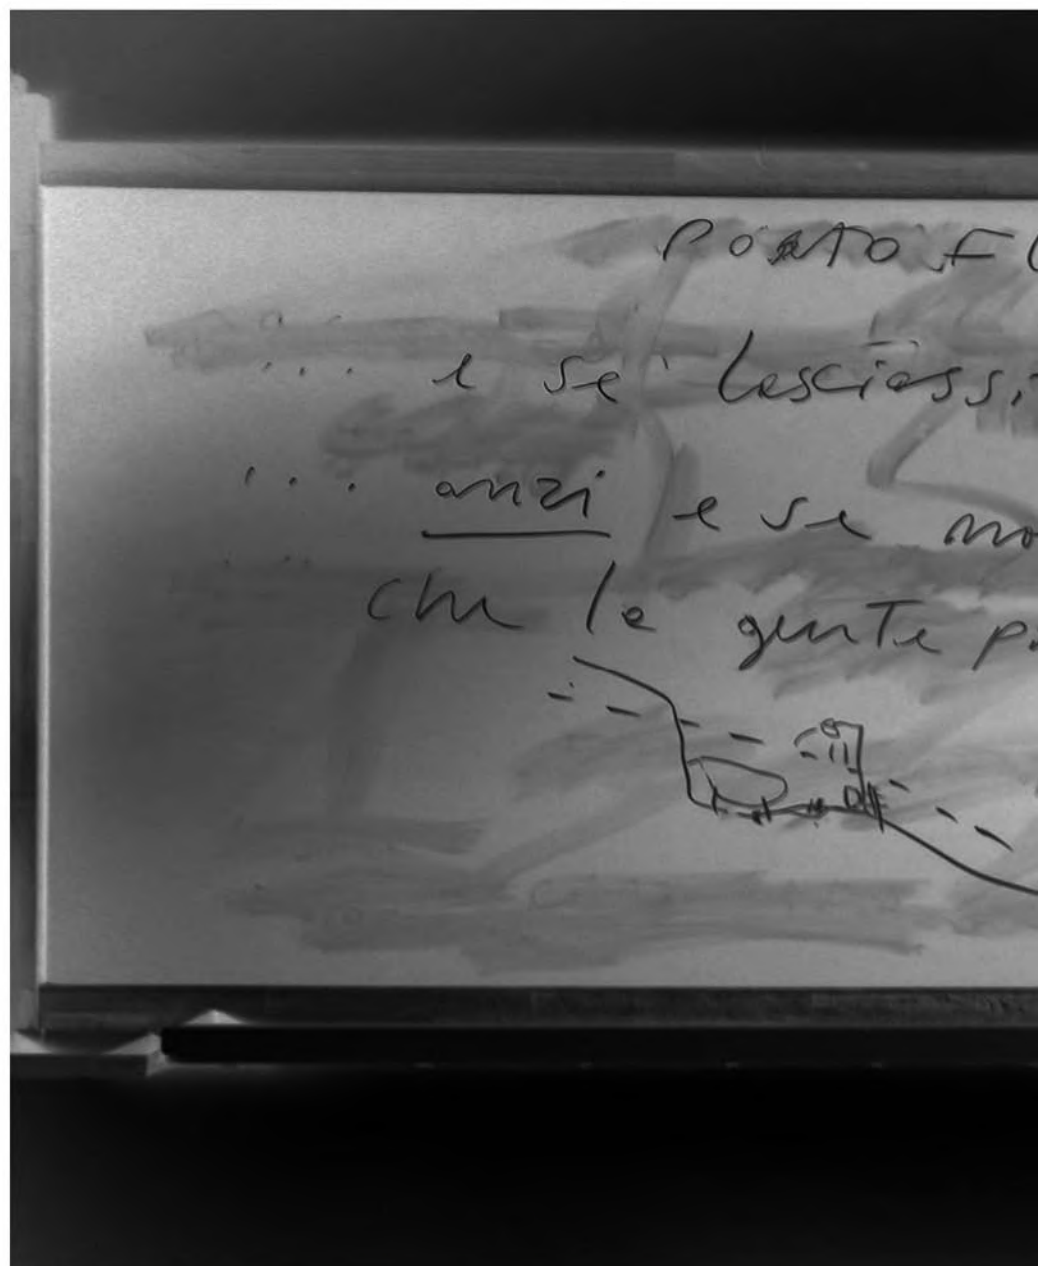 PORTO FL
... e se lasciassi
... anzi e se no
che la gente p